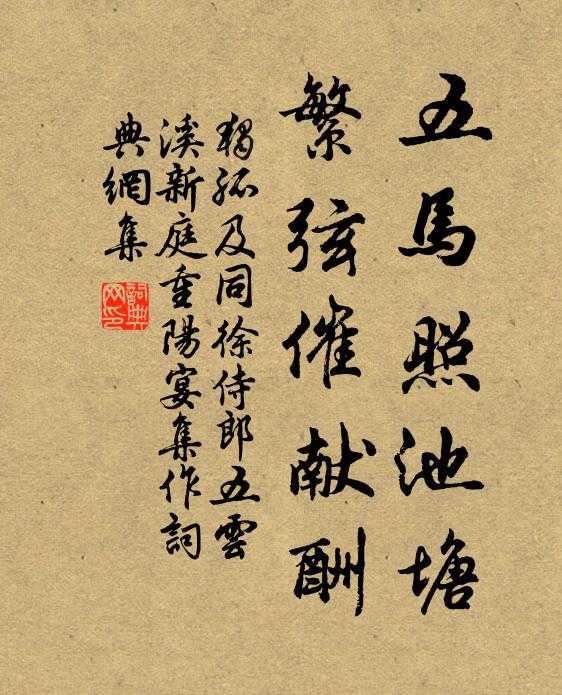 五馬照池塘
繁弦催献酬
獨孤及同徐侍郎五雲
溪新庭重陽宴集作詞
典網集
詞典网印